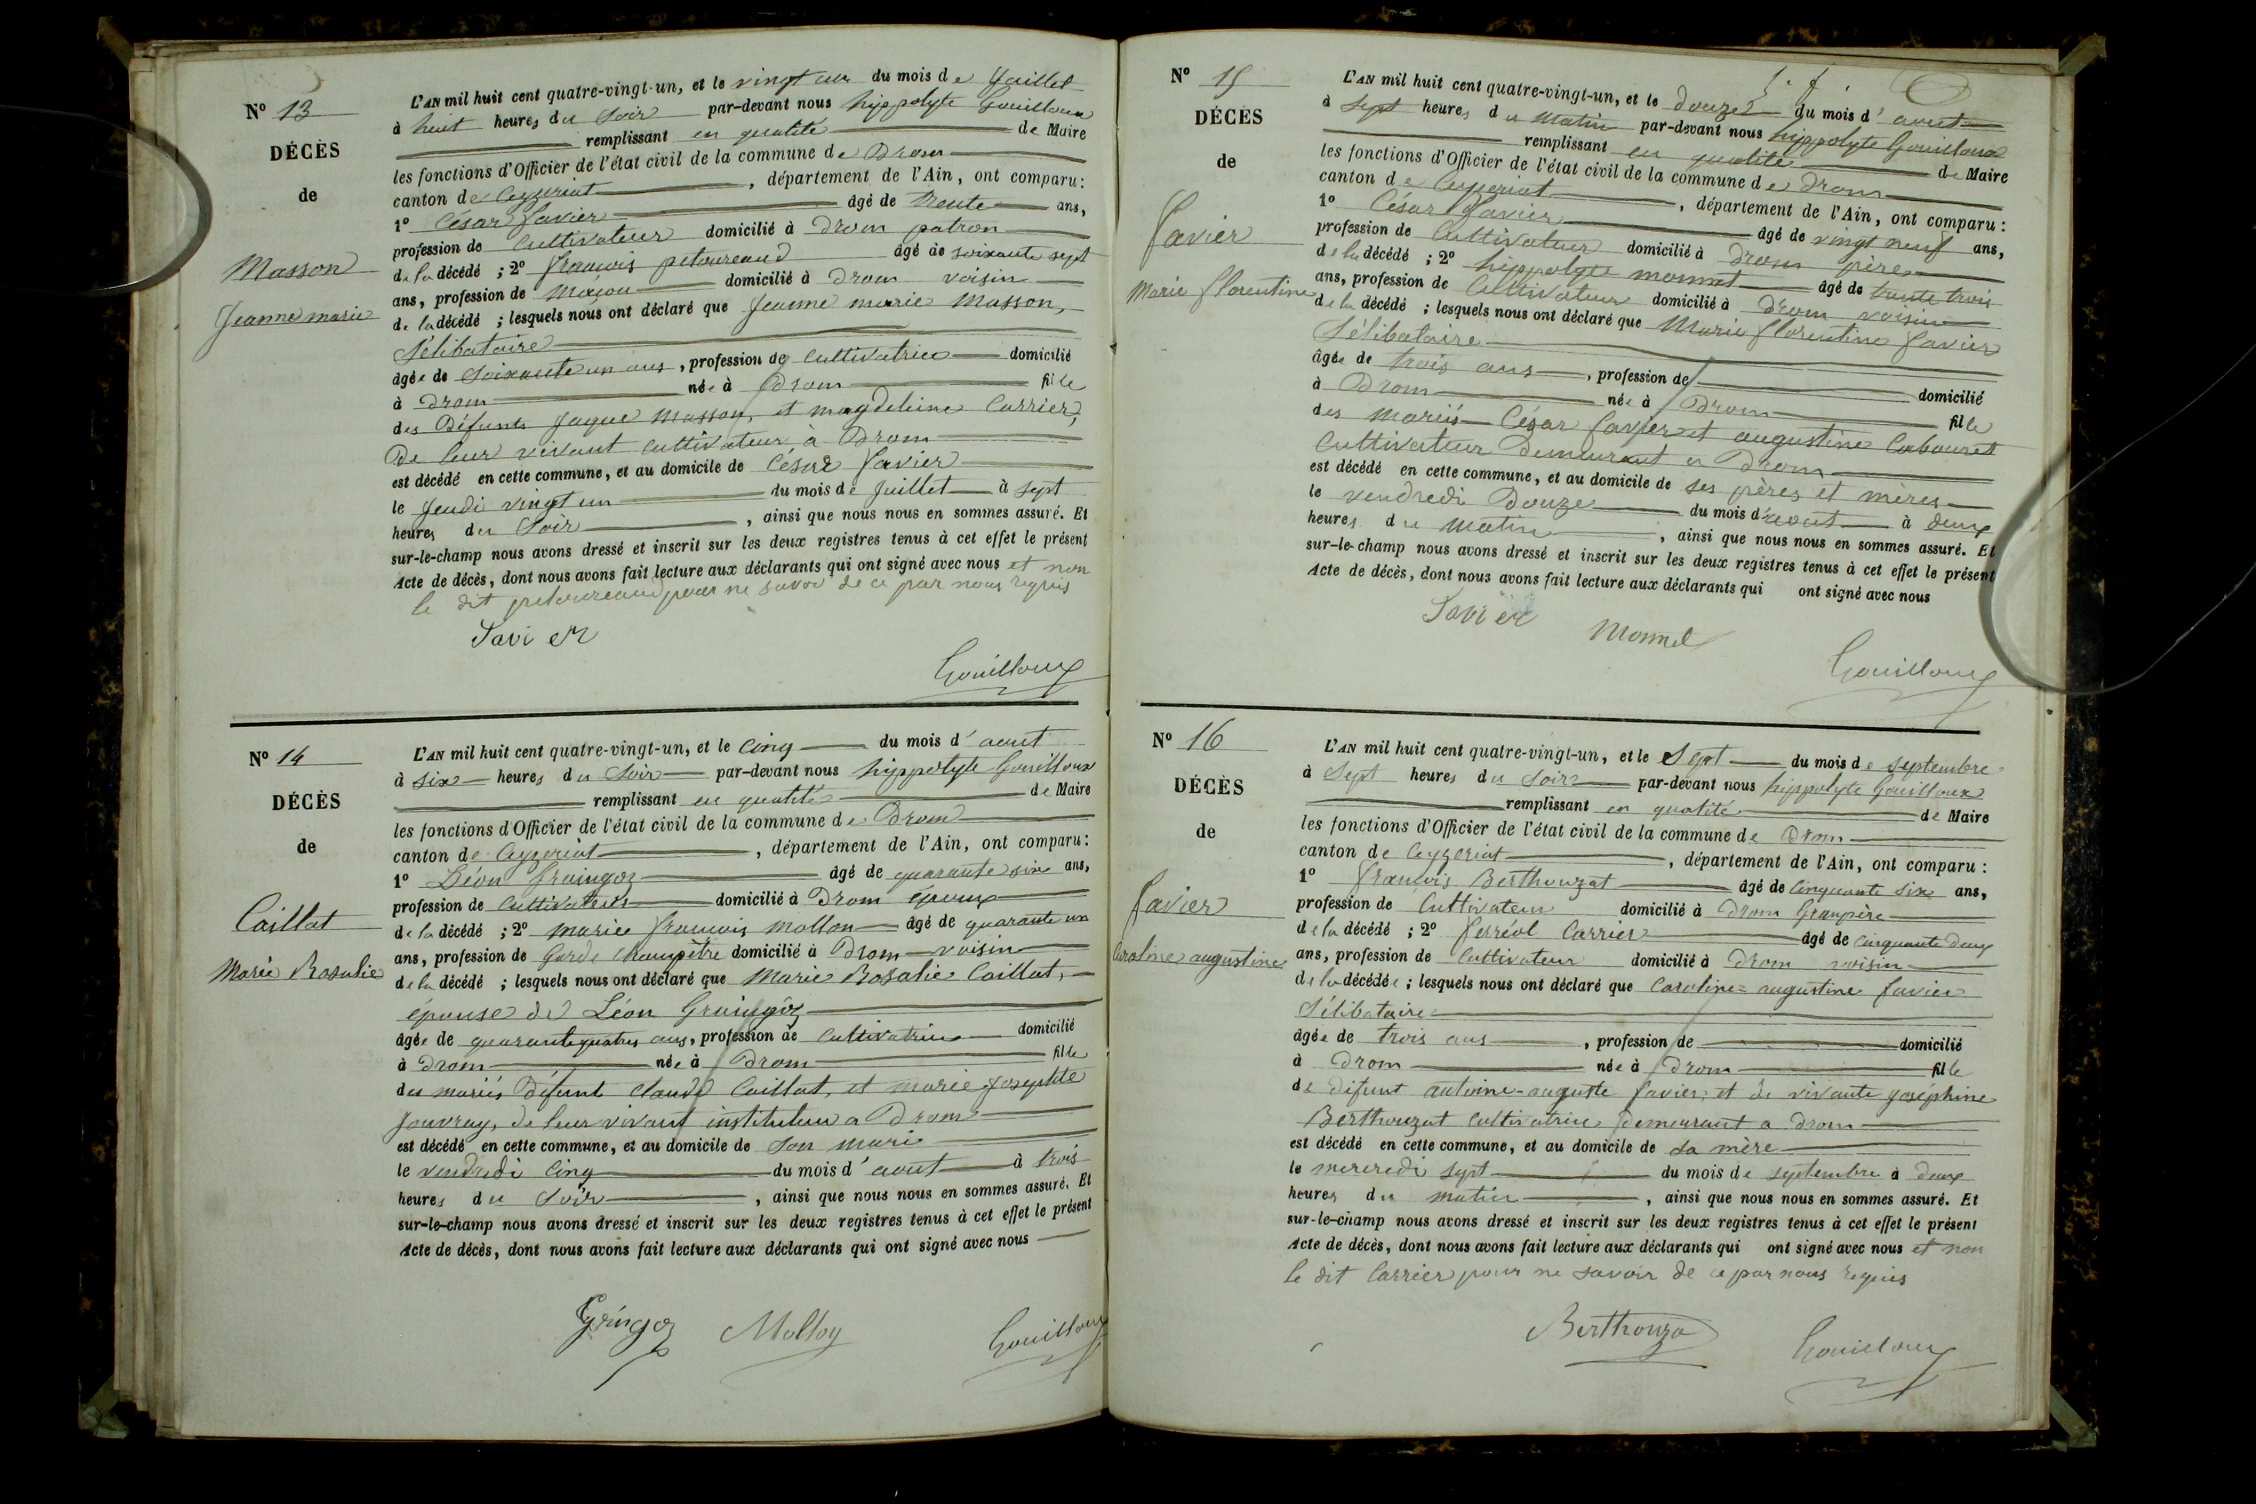 Nº 13
DÉCÈS
de
Masson
Jeanne marie
L'AN mil huit cent quatre-vingt-un, et le vingt un du mois de Juillet
à huit heures du Soir par-devant nous hippolyte Gouilloux
remplissant en qualité de Maire
les fonctions d'Officier de l'état civil de la commune de Drom
canton de Ceyzeriat, département de l'Ain, ont comparu:
1º César favier âgé de trente ans,
profession de Cultivateur domicilié à Drom patron
de la décédé ; 2º françois petoureaud âgé de soixante sept
ans, profession de maçon domicilié à Drom voisin
de la décédé ; lesquels nous ont déclaré que Jeanne marie Masson,
Sélibataire
âgée de soixante un ans, profession de Cultivatrice domicilié
à Drom née à Drom fille
des Défunts Jaque Masson, et magdeleine Carrier,
De leur vivant Cultivateur à Drom
est décédé en cette commune, et au domicile de César favier
le Jeudi vingt un du mois de Juillet à sept
heures du Soir, ainsi que nous nous en sommes assuré. Et
sur-le-champ nous avons dressé et inscrit sur les deux registres tenus à cet effet le présent
Acte de décès, dont nous avons fait lecture aux déclarants qui ont signé avec nous et non
le dit petoureaud pour ne savoir de ce par nous requis
Favier
Gouilloux
Nº 14
DÉCÈS
de
Caillat
Marie Rosalie
L'AN mil huit cent quatre-vingt-un, et le Cinq du mois d'aout
à six heures du Soir par-devant nous hippolyte Gouilloux
remplissant en qualité de Maire
les fonctions d'Officier de l'état civil de la commune de Drom
canton de Ceyzeriat, département de l'Ain, ont comparu:
1º Léon Gruingoz âgé de quarante six ans,
profession de Cultivateur domicilié à Drom époux
de la décédé ; 2º marie françois mollon âgé de quarante un
ans, profession de Garde Champêtre domicilié à Drom voisin
de la décédé ; lesquels nous ont déclaré que Marie Rosalie Caillat,
épouse de Léon Gruingoz
âgée de quarante quatres ans, profession de Cultivatrice domicilié
à Drom née à Drom fille
des mariés Défunt Claude Caillat, et marie Josephte
Jouvray, de leur vivant instituteur a Drom
est décédé en cette commune, et au domicile de son mari
le vendredi Cinq du mois d'aout à trois
heures du Soir, ainsi que nous nous en sommes assuré. Et
sur-le-champ nous avons dressé et inscrit sur les deux registres tenus à cet effet le présent
Acte de décès, dont nous avons fait lecture aux déclarants qui ont signé avec nous
Gringoz Mollon
Gouilloux
Nº 15
DÉCÈS
de
Favier
Marie florentine
L'AN mil huit cent quatre-vingt-un, et le douze du mois d'aout
à Sept heures du Matin par-devant nous hippolyte Gouilloux
remplissant en qualité de Maire
les fonctions d'Officier de l'état civil de la commune de Drom
canton de Ceyzeriat, département de l'Ain, ont comparu:
1º César Favier âgé de vingt neuf ans,
profession de Cultivateur domicilié à Drom père
de la décédé ; 2º hippolyte monnet âgé de trente trois
ans, profession de Cultivateur domicilié à Drom voisin
de la décédé ; lesquels nous ont déclaré que Marie florentine favier
Sélibataire
âgée de trois ans, profession de domicilié
à Drom née à Drom fille
des mariés César favier et augustine Cabouret
Cultivateur Demeurant a Drom
est décédé en cette commune, et au domicile de ses pères et mères
le vendredi Douze du mois d'aout à deux
heures du matin, ainsi que nous nous en sommes assuré. Et
sur-le-champ nous avons dressé et inscrit sur les deux registres tenus à cet effet le présent
Acte de décès, dont nous avons fait lecture aux déclarants qui ont signé avec nous
Favier
Monnet
Gouilloux
Nº 16
DÉCÈS
de
favier
Caroline augustine
L'AN mil huit cent quatre-vingt-un, et le Sept du mois de septembre
à Sept heures du Soir par-devant nous hippolyte Gouilloux
remplissant en qualité de Maire
les fonctions d'Officier de l'état civil de la commune de Drom
canton de Ceyzeriat, département de l'Ain, ont comparu:
1º françois Berthouzat âgé de Cinquante six ans,
profession de Cultivateur domicilié à Drom Granpère
de la décédé ; 2º ferréol Carrier âgé de Cinquante deux
ans, profession de Cultivateur domicilié à Drom voisin
de la décédée ; lesquels nous ont déclaré que Caroline = augustine favier
Sélibataire
âgée de trois ans, profession de domicilié
à Drom née à Drom fille
de défunt antoine-auguste favier, et de vivante Joséphine
Berthouzat Cultivatrice Demeurant a Drom
est décédé en cette commune, et au domicile de sa mère
le mercredi sept du mois de septembre à deux
heures du matin, ainsi que nous nous en sommes assuré. Et
sur-le-champ nous avons dressé et inscrit sur les deux registres tenus à cet effet le présent
Acte de décès, dont nous avons fait lecture aux déclarants qui ont signé avec nous et non
le dit Carrier pour ne savoir de ce par nous requis
Berthouza
Gouilloux